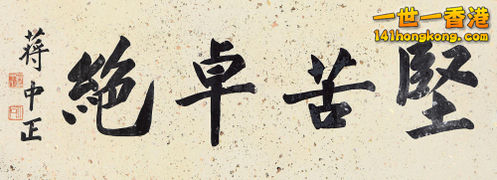 堅苦卓絕
蔣中正
一世一香港
141hongkong.com